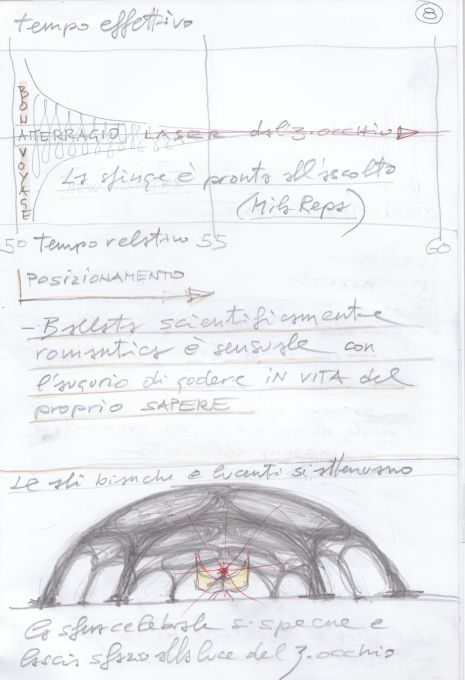 8
tempo effettivo
BON A VOYASE
ATTERRAGIO LASER dal 3. occhio
La sfinge è pronta all'ascolto
(Mila Reps)
50 tempo relativo 55 60
POSIZIONAMENTO
- Ballata scientificamente
romantica è sensuale con
l'augurio di godere IN VITA del
proprio SAPERE
Le ali bianche e lucenti si attenuano
La sfera celebrale si spegne e
lascia sfazo alla luce del 3. occhio